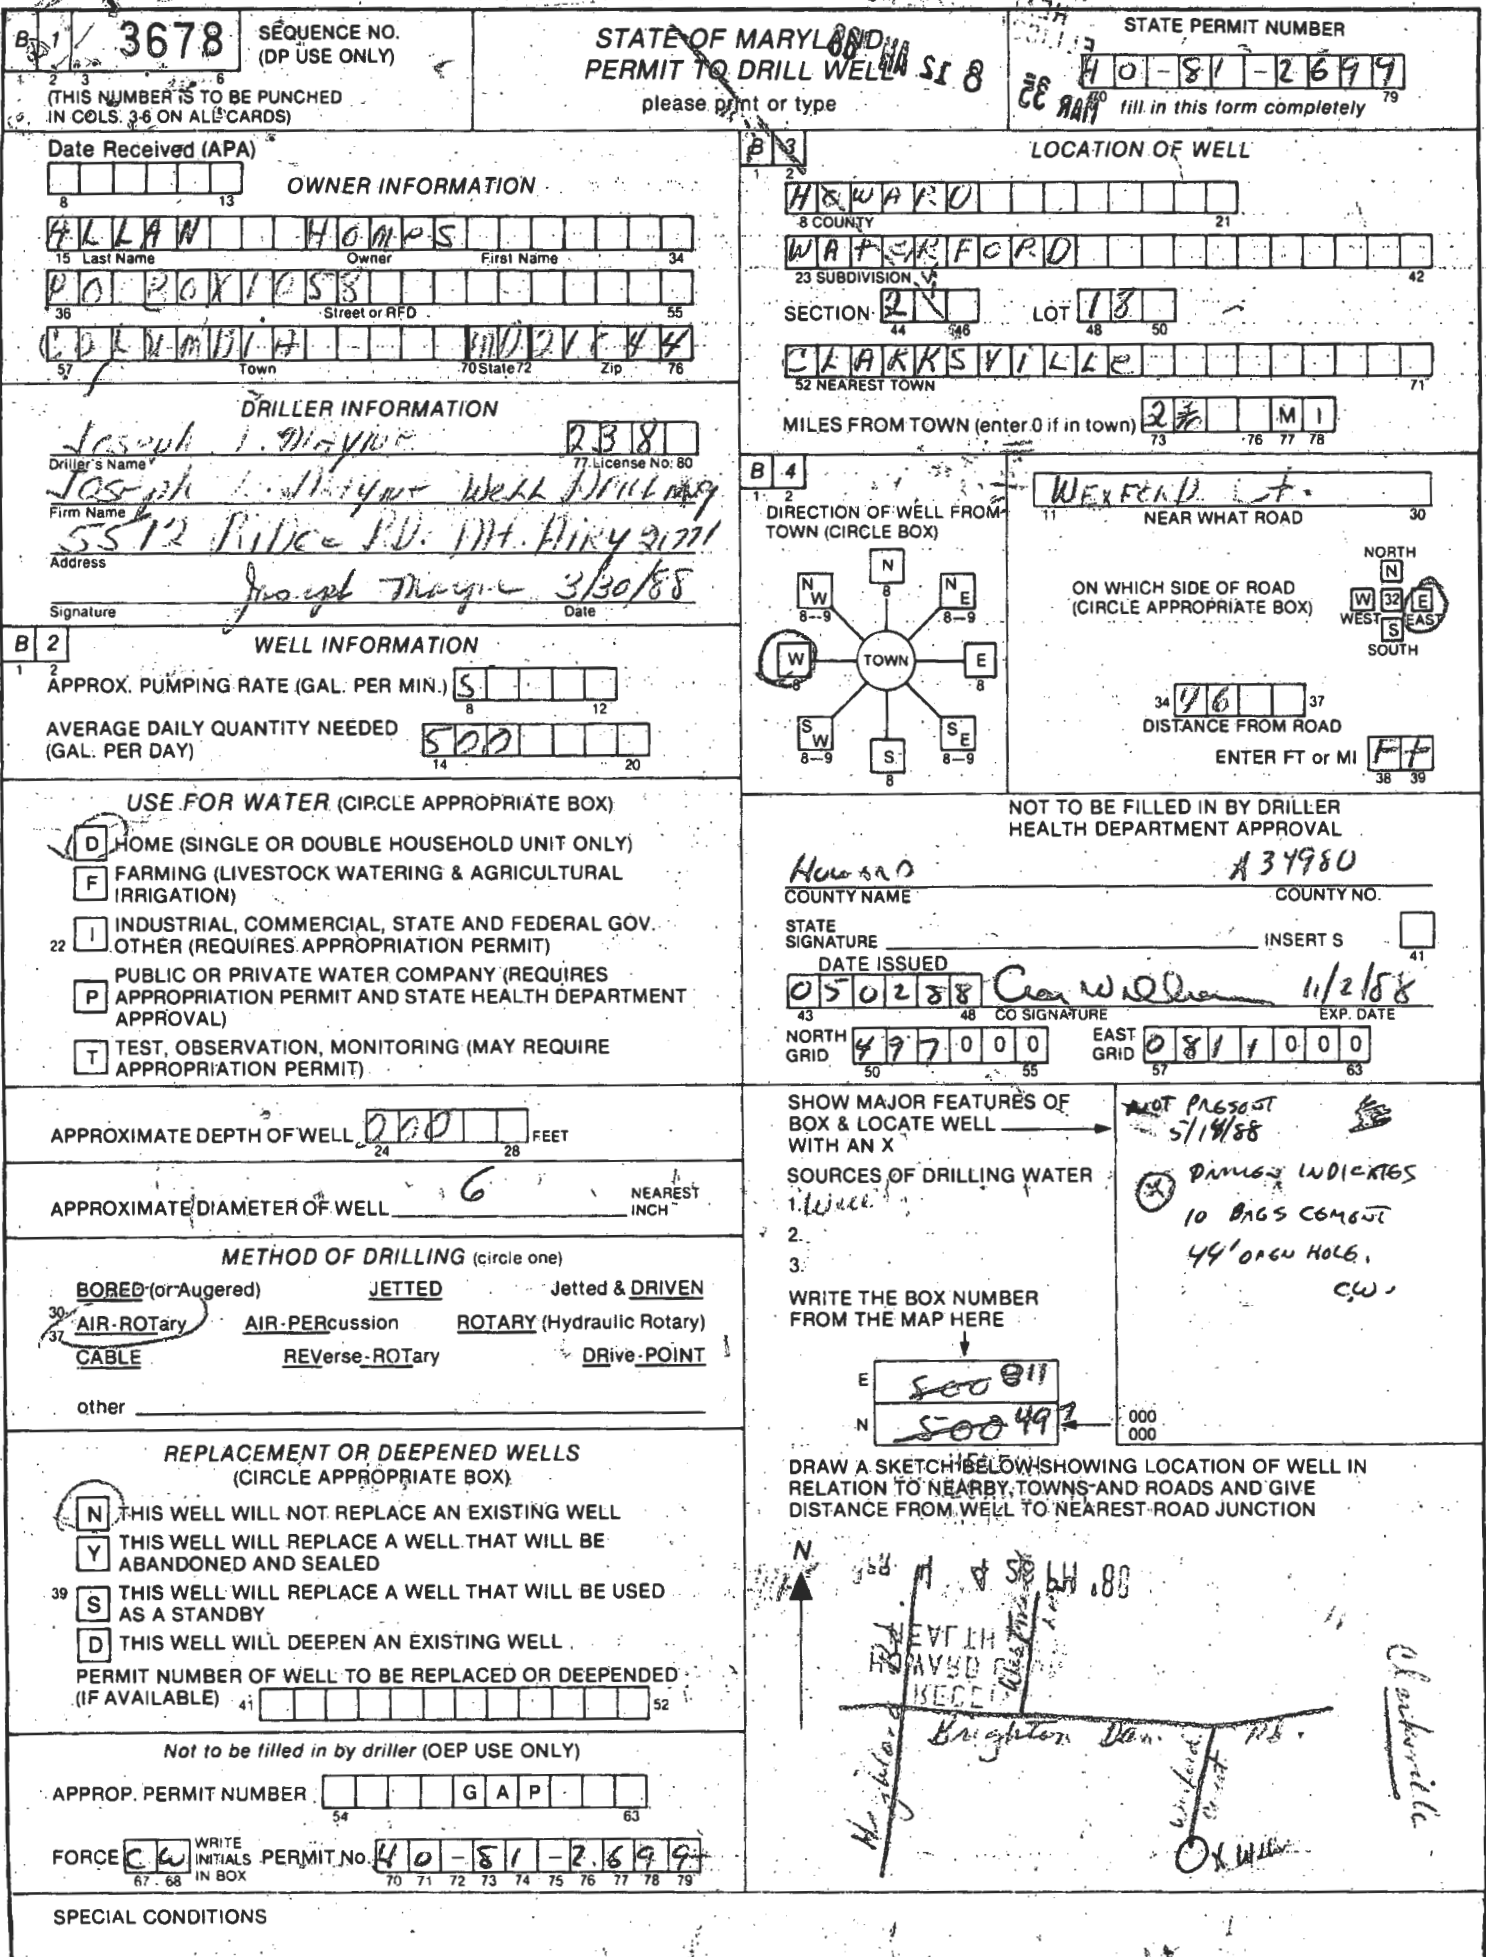 B 1 3678 SEQUENCE NO.
(DP USE ONLY)
1 2 3 6
(THIS NUMBER IS TO BE PUNCHED
IN COLS. 3-6 ON ALL CARDS)
STATE OF MARYLAND
PERMIT TO DRILL WELL
please print or type
STATE PERMIT NUMBER
HO-81-2699
70 79
fill in this form completely
Date Received (APA)
8 13
OWNER INFORMATION
ALLAN HOMES
15 Last Name Owner First Name 34
PO BOX 1058
36 Street or RFD 55
COLUMBIA MD 21044
57 Town 70 State 72 Zip 76
DRILLER INFORMATION
Joseph L. Mayne 238
Driller's Name 77 License No. 80
Joseph L. Mayne Well Drilling
Firm Name
5512 Ridge Rd. Mt. Airy 21771
Address
Joseph Mayne 3/30/88
Signature Date
B 2 WELL INFORMATION
1 2
APPROX. PUMPING RATE (GAL. PER MIN.) 5
8 12
AVERAGE DAILY QUANTITY NEEDED
(GAL. PER DAY) 500
14 20
USE FOR WATER (CIRCLE APPROPRIATE BOX)
D HOME (SINGLE OR DOUBLE HOUSEHOLD UNIT ONLY)
F FARMING (LIVESTOCK WATERING & AGRICULTURAL
IRRIGATION)
22 I INDUSTRIAL, COMMERCIAL, STATE AND FEDERAL GOV.
OTHER (REQUIRES APPROPRIATION PERMIT)
P PUBLIC OR PRIVATE WATER COMPANY (REQUIRES
APPROPRIATION PERMIT AND STATE HEALTH DEPARTMENT
APPROVAL)
T TEST, OBSERVATION, MONITORING (MAY REQUIRE
APPROPRIATION PERMIT)
APPROXIMATE DEPTH OF WELL 200 FEET
24 28
APPROXIMATE DIAMETER OF WELL 6 NEAREST
INCH
METHOD OF DRILLING (circle one)
BORED (or Augered) JETTED Jetted & DRIVEN
30 AIR-ROTary AIR-PERcussion ROTARY (Hydraulic Rotary)
37 CABLE REVerse-ROTary DRive-POINT
other
REPLACEMENT OR DEEPENED WELLS
(CIRCLE APPROPRIATE BOX)
N THIS WELL WILL NOT REPLACE AN EXISTING WELL
Y THIS WELL WILL REPLACE A WELL THAT WILL BE
ABANDONED AND SEALED
39 S THIS WELL WILL REPLACE A WELL THAT WILL BE USED
AS A STANDBY
D THIS WELL WILL DEEPEN AN EXISTING WELL
PERMIT NUMBER OF WELL TO BE REPLACED OR DEEPENDED
(IF AVAILABLE) 41 52
Not to be filled in by driller (OEP USE ONLY)
APPROP. PERMIT NUMBER GAP
54 63
FORCE CW WRITE INITIALS IN BOX PERMIT No. HO-81-2699
67 68 70 71 72 73 74 75 76 77 78 79
SPECIAL CONDITIONS
B 3 LOCATION OF WELL
1 2
HOWARD
8 COUNTY 21
WATERFORD
23 SUBDIVISION 42
SECTION 2 LOT 18
44 46 48 50
CLARKSVILLE
52 NEAREST TOWN 71
MILES FROM TOWN (enter 0 if in town) 2 MI
73 76 77 78
B 4
1 2
DIRECTION OF WELL FROM
TOWN (CIRCLE BOX)
N
8
NW NE
8-9 8-9
W TOWN E
8 8
SW SE
8-9 8-9
S
8
WEXFORD Ct.
11 NEAR WHAT ROAD 30
ON WHICH SIDE OF ROAD
(CIRCLE APPROPRIATE BOX)
NORTH
N
W 32 E
WEST EAST
S
SOUTH
34 46 37
DISTANCE FROM ROAD
ENTER FT or MI Ft
38 39
NOT TO BE FILLED IN BY DRILLER
HEALTH DEPARTMENT APPROVAL
Howard A34980
COUNTY NAME COUNTY NO.
STATE
SIGNATURE INSERT S
41
DATE ISSUED
050288 11/2/88
43 48 CO SIGNATURE EXP. DATE
NORTH GRID 497000 EAST GRID 0811000
50 55 57 63
SHOW MAJOR FEATURES OF
BOX & LOCATE WELL
WITH AN X
SOURCES OF DRILLING WATER
1. Well
2.
3.
WRITE THE BOX NUMBER
FROM THE MAP HERE
E 500 811
N 500 497
000
000
NOT PRESENT
5/18/88
DRILLER INDICATES
10 BAGS CEMENT
44' OPEN HOLE.
C.W.
DRAW A SKETCH BELOW SHOWING LOCATION OF WELL IN
RELATION TO NEARBY TOWNS AND ROADS AND GIVE
DISTANCE FROM WELL TO NEAREST ROAD JUNCTION
N
Highland Rd
Brighton Dam Rd.
Wexford Court
X Well
Clarksville